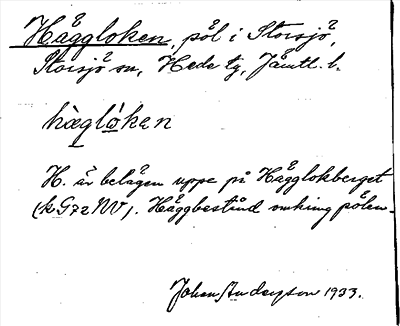 Häggloken, pöl i Storsjö,
Storsjö sn, Hede tg, Jämtl. l.
hægløkan
H. är belägen uppe på Hägglokberget
(k G72 NV). Häggbestånd omkring pölen.
Johan Anderson 1933.